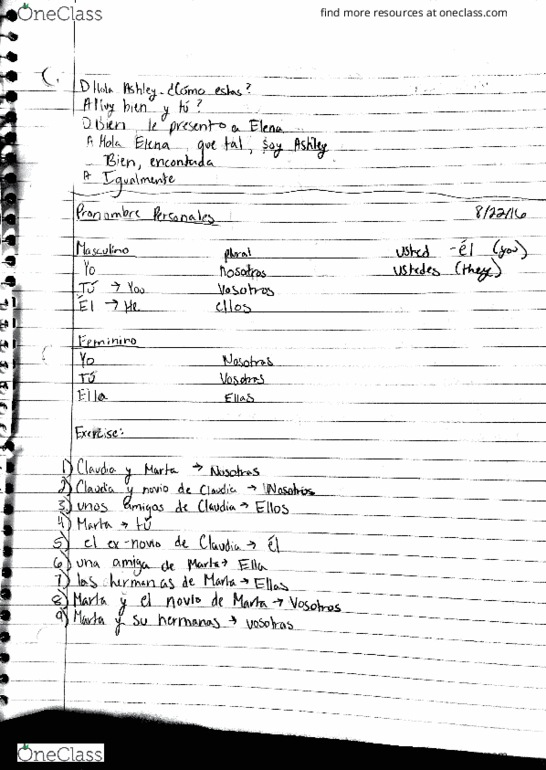 OneClass
find more resources at oneclass.com
C.
D Hola Ashley. ¿Cómo estas?
A Muy bien y tú?
D Bien, le presento a Elena
A Hola Elena, que tal, soy Ashley
Bien, encontada
A Igualmente
Pronombre Personales 8/22/16
Masculino plural usted - él (you)
Yo nosotros ustedes (they)
TÚ → You Vosotros
Él → He ellos
Feminino
Yo Nosotras
TÚ Vosotras
Ella Ellas
Exercise:
1) Claudia y Marta → Nosotras
2) Claudia y novio de Claudia → Nosotros
3) unos amigos de Claudia → Ellos
4) Marta → tú
5) el ex-novio de Claudia → él
6) una amiga de Marta → Ella
7) las hermanas de Marta → Ellas
8) Marta y el novio de Marta → Vosotros
9) Marta y su hermanas → vosotras
OneClass